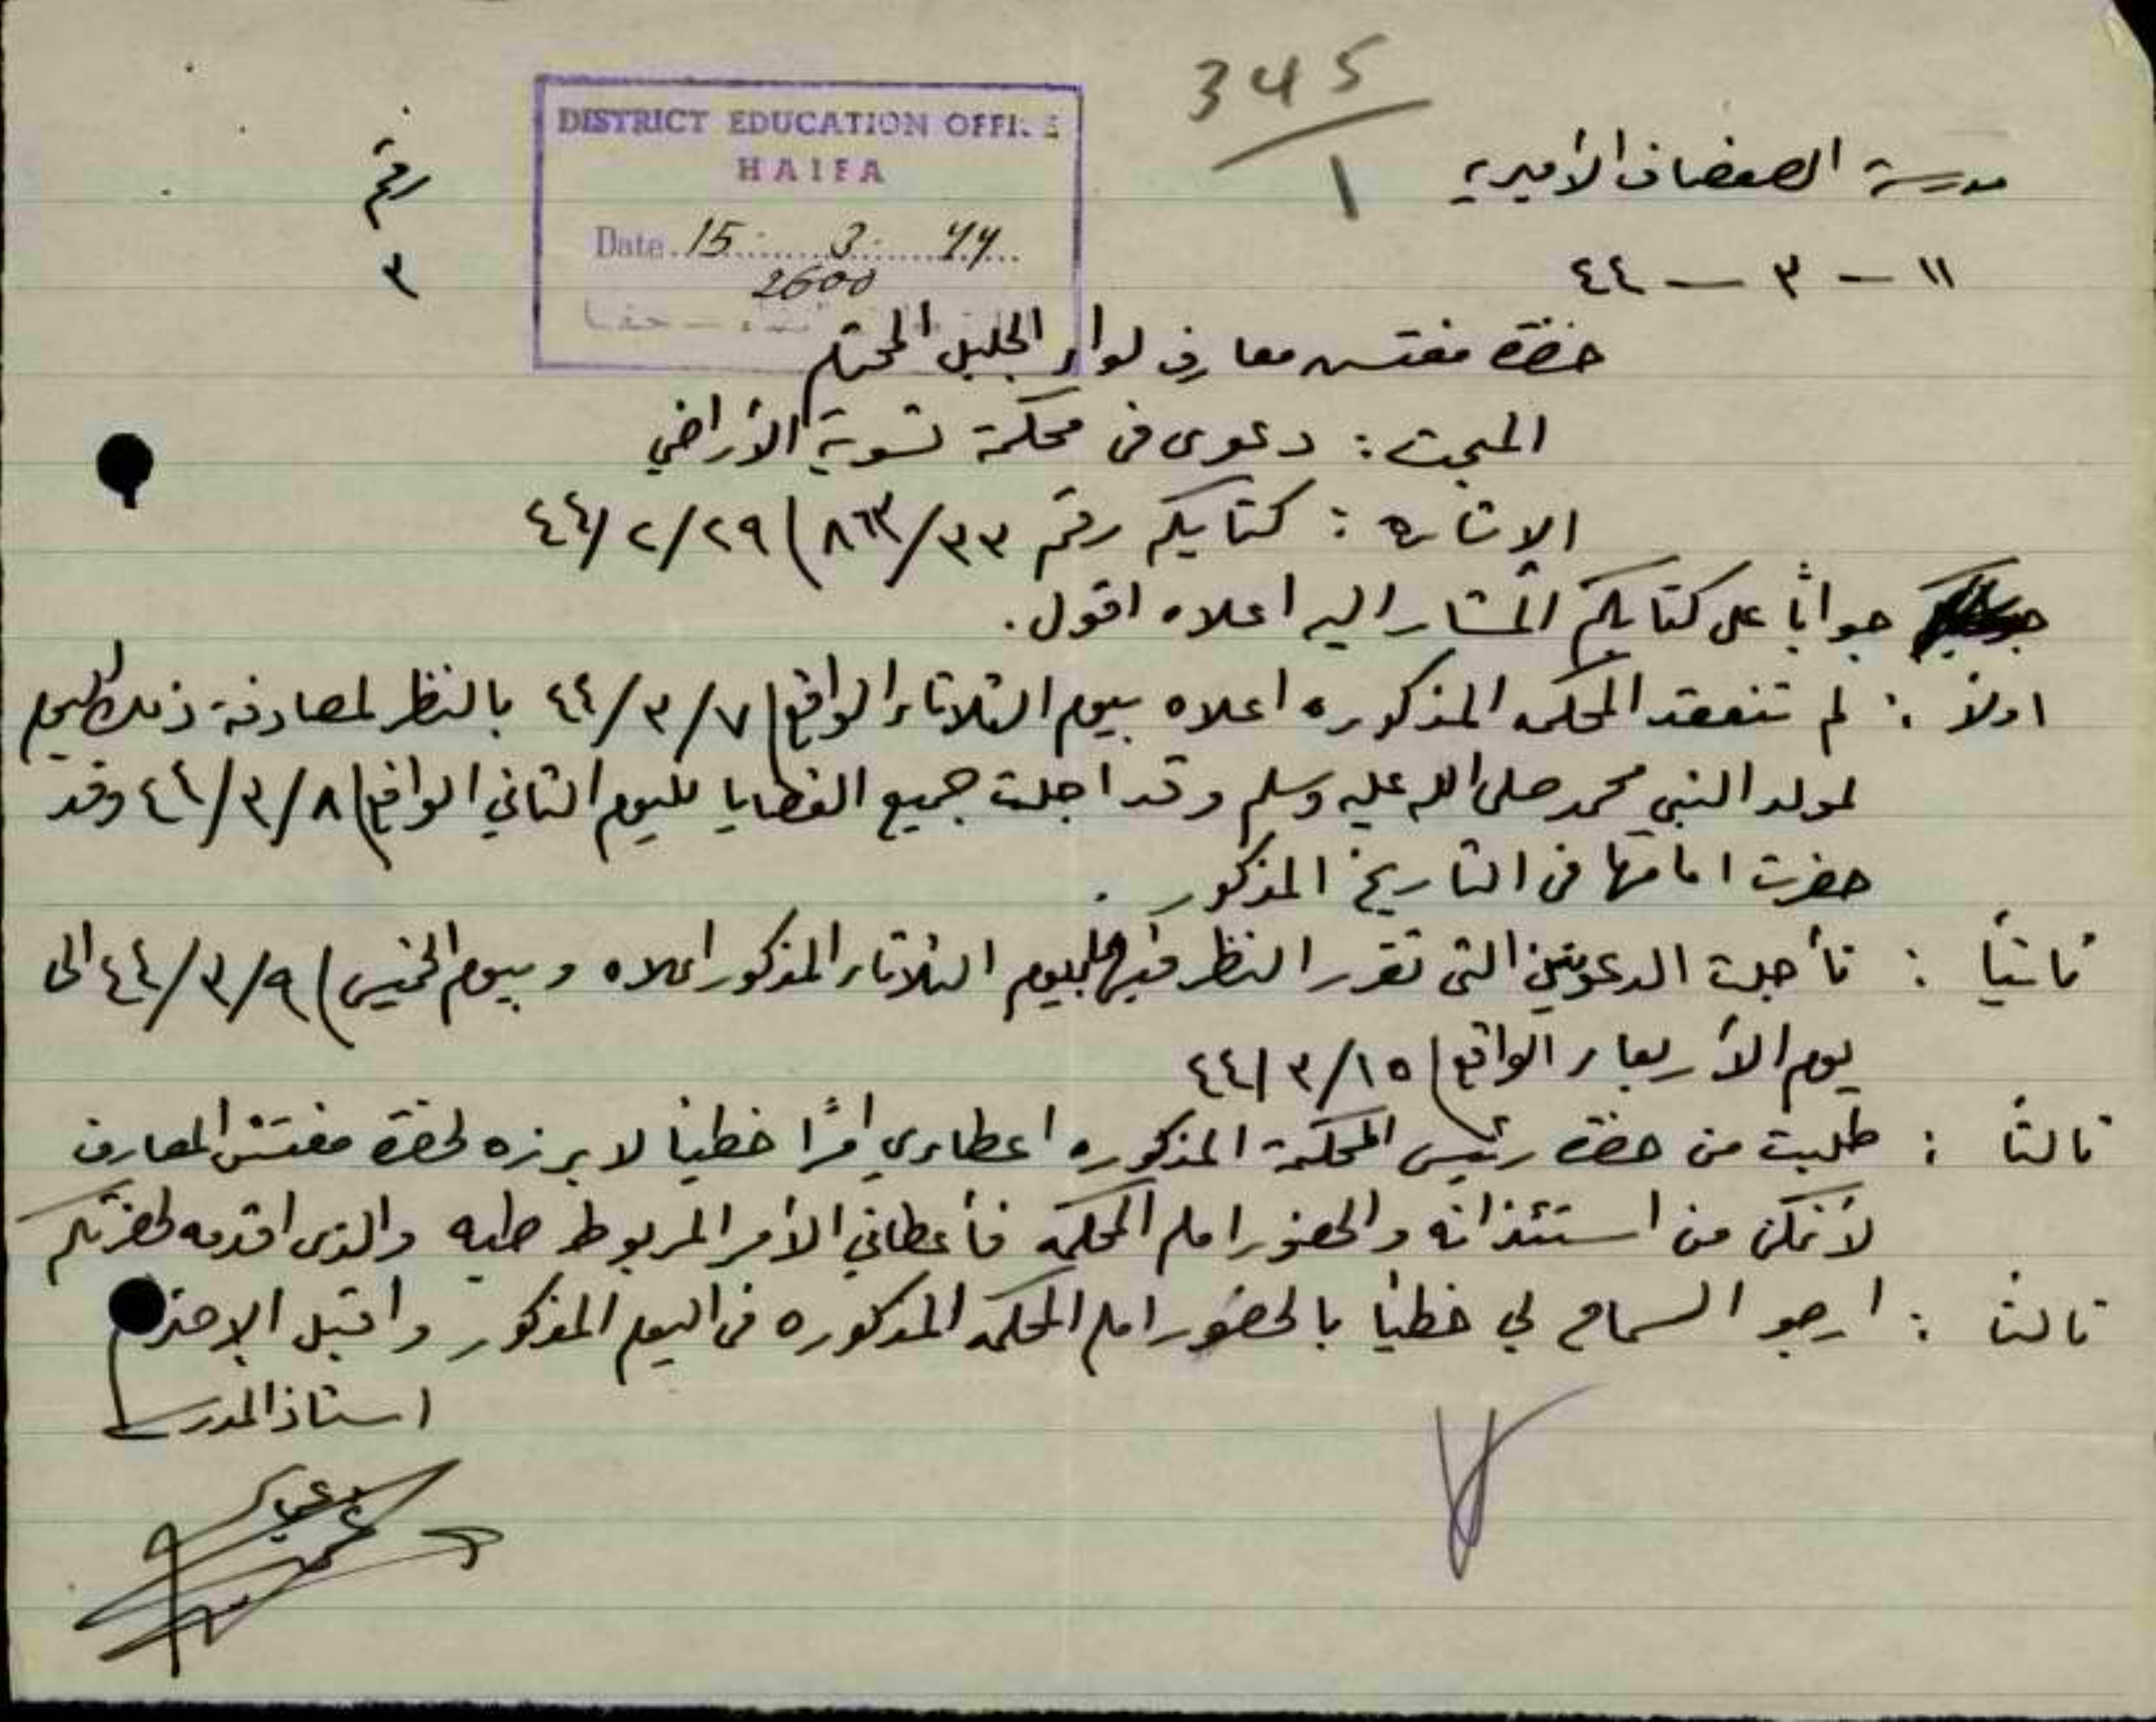 345
1
DISTRICT EDUCATION OFFI
HAIFA
Date. 15. 3. 44
2600
مدرسة الصفصاف الأميرية
رقم
١١ - ٣ - ٤٤
٣
حضرة مفتش معارف لواء الجليل المحترم
المبحث : دعوى في محكمة تسوية الأراضي
الاشارة : كتابكم رقم ٨٦٣/٣٣) ٤٤/٢/٢٩
جواباً على كتابكم المشار اليه اعلاه اقول .
اولاً : لم تنعقد المحكمه المذكوره اعلاه بيوم الثلاثاء الواقع) ٤٤/٣/٧ بالنظر لمصادفة ذلك اليوم
لمولد النبي محمد صلى الله عليه وسلم وقد اجلت جميع القضايا لليوم الثاني الواقع) ٤٤/٣/٨ وقد
حضرت امامها في التاريخ المذكور .
ثانياً : تأجلت الدعوتين التي تقرر النظر فيها بيوم الثلاثاء المذكور اعلاه و بيوم الخميس) ٤٤/٣/٩ الى
يوم الأربعاء الواقع) ٤٤/٣/١٥
ثالثاً : طلبت من حضرة رئيس المحكمة المذكوره اعطاءي امراً خطياً لابرزه لحضرة مفتش المعارف
لأتمكن من استئذانه والحضور امام المحكمة فأعطاني الأمر المربوط طيه والذي اقدمه لحضرتكم
ثالثاً : ارجو السماح لي خطياً بالحضور امام المحكمه المذكوره في اليوم المذكور واقبل الاحترام
استاذ المدرسة